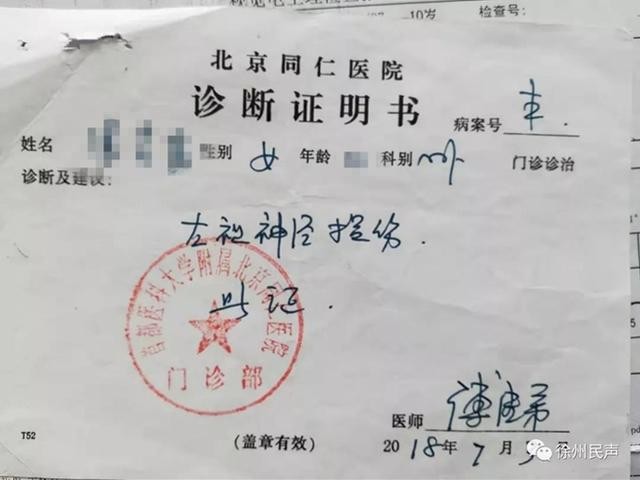 10岁 检查号:
北京同仁医院
诊断证明书
病案号
姓名 性别 女 年龄 科别 眼 门诊诊治
诊断及建议:
左视神经损伤.
此证.
首都医科大学附属北京同仁医院
门诊部
医师
T52
(盖章有效)
2018年7月
徐州民声